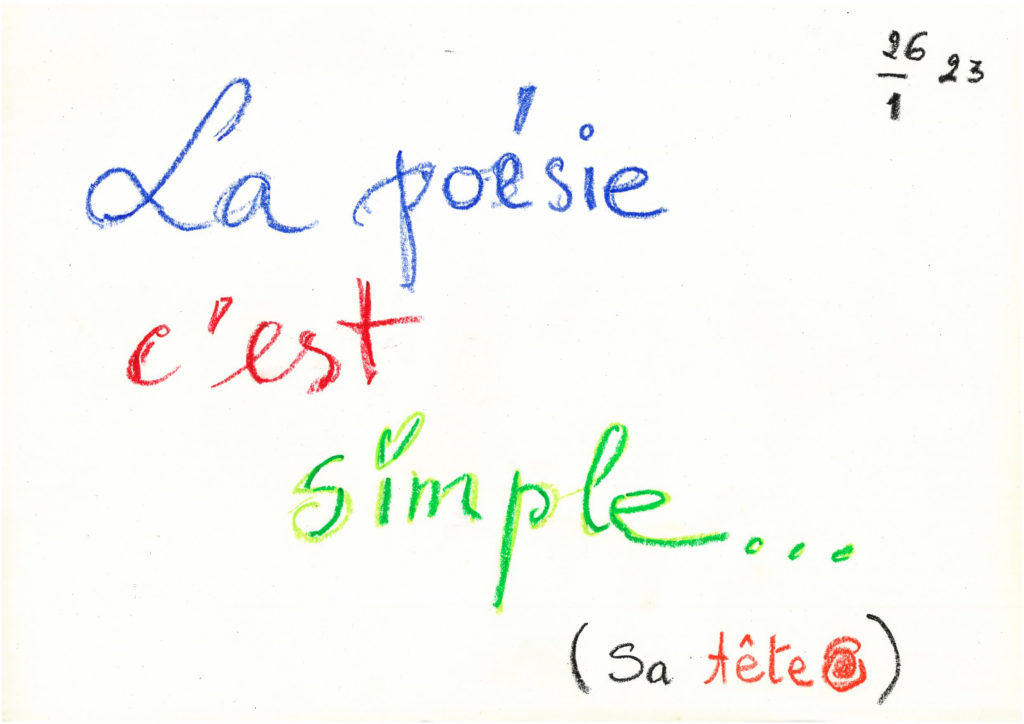 26 23
1
La poésie
c'est
simple...
(Sa tête)